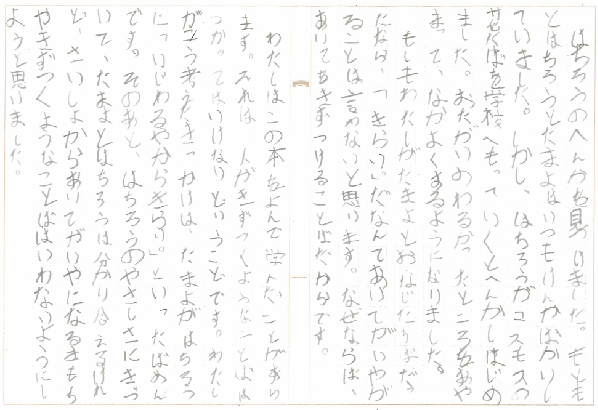 はちろうのへんかを見つけました。もとも
とはちろうとたまよはいつもけんかばかりし
ていました。しかし、はちろうがコスモスの
花たばを学校へもっていくとへんかしはじめ
ました。おたがいのわるかったところをあや
まって、なかよくあるようになりました。
もしもわたしがたまよとおなじたちばだっ
たなら、「きらい。」だなんてあいてがいやが
ることは言わないと思います。なぜならば、
あいてをきずつけることばだからです。
わたしはこの本をよんで学んだことがあり
ます。それは、人がきずつくようなことばは
つかってはいけないということです。わたし
がそう考えたきっかけは、たまよがはちろう
に「いじわるやからきらう。」といったばめん
です。そのあと、はちろうのやさしさにきづ
いて、たまよとはちろうは分かりあえるけれ
ど、さいしょからあいてがいやになるきもち
やきずつくようなことばはいわないようにし
ようと思いました。